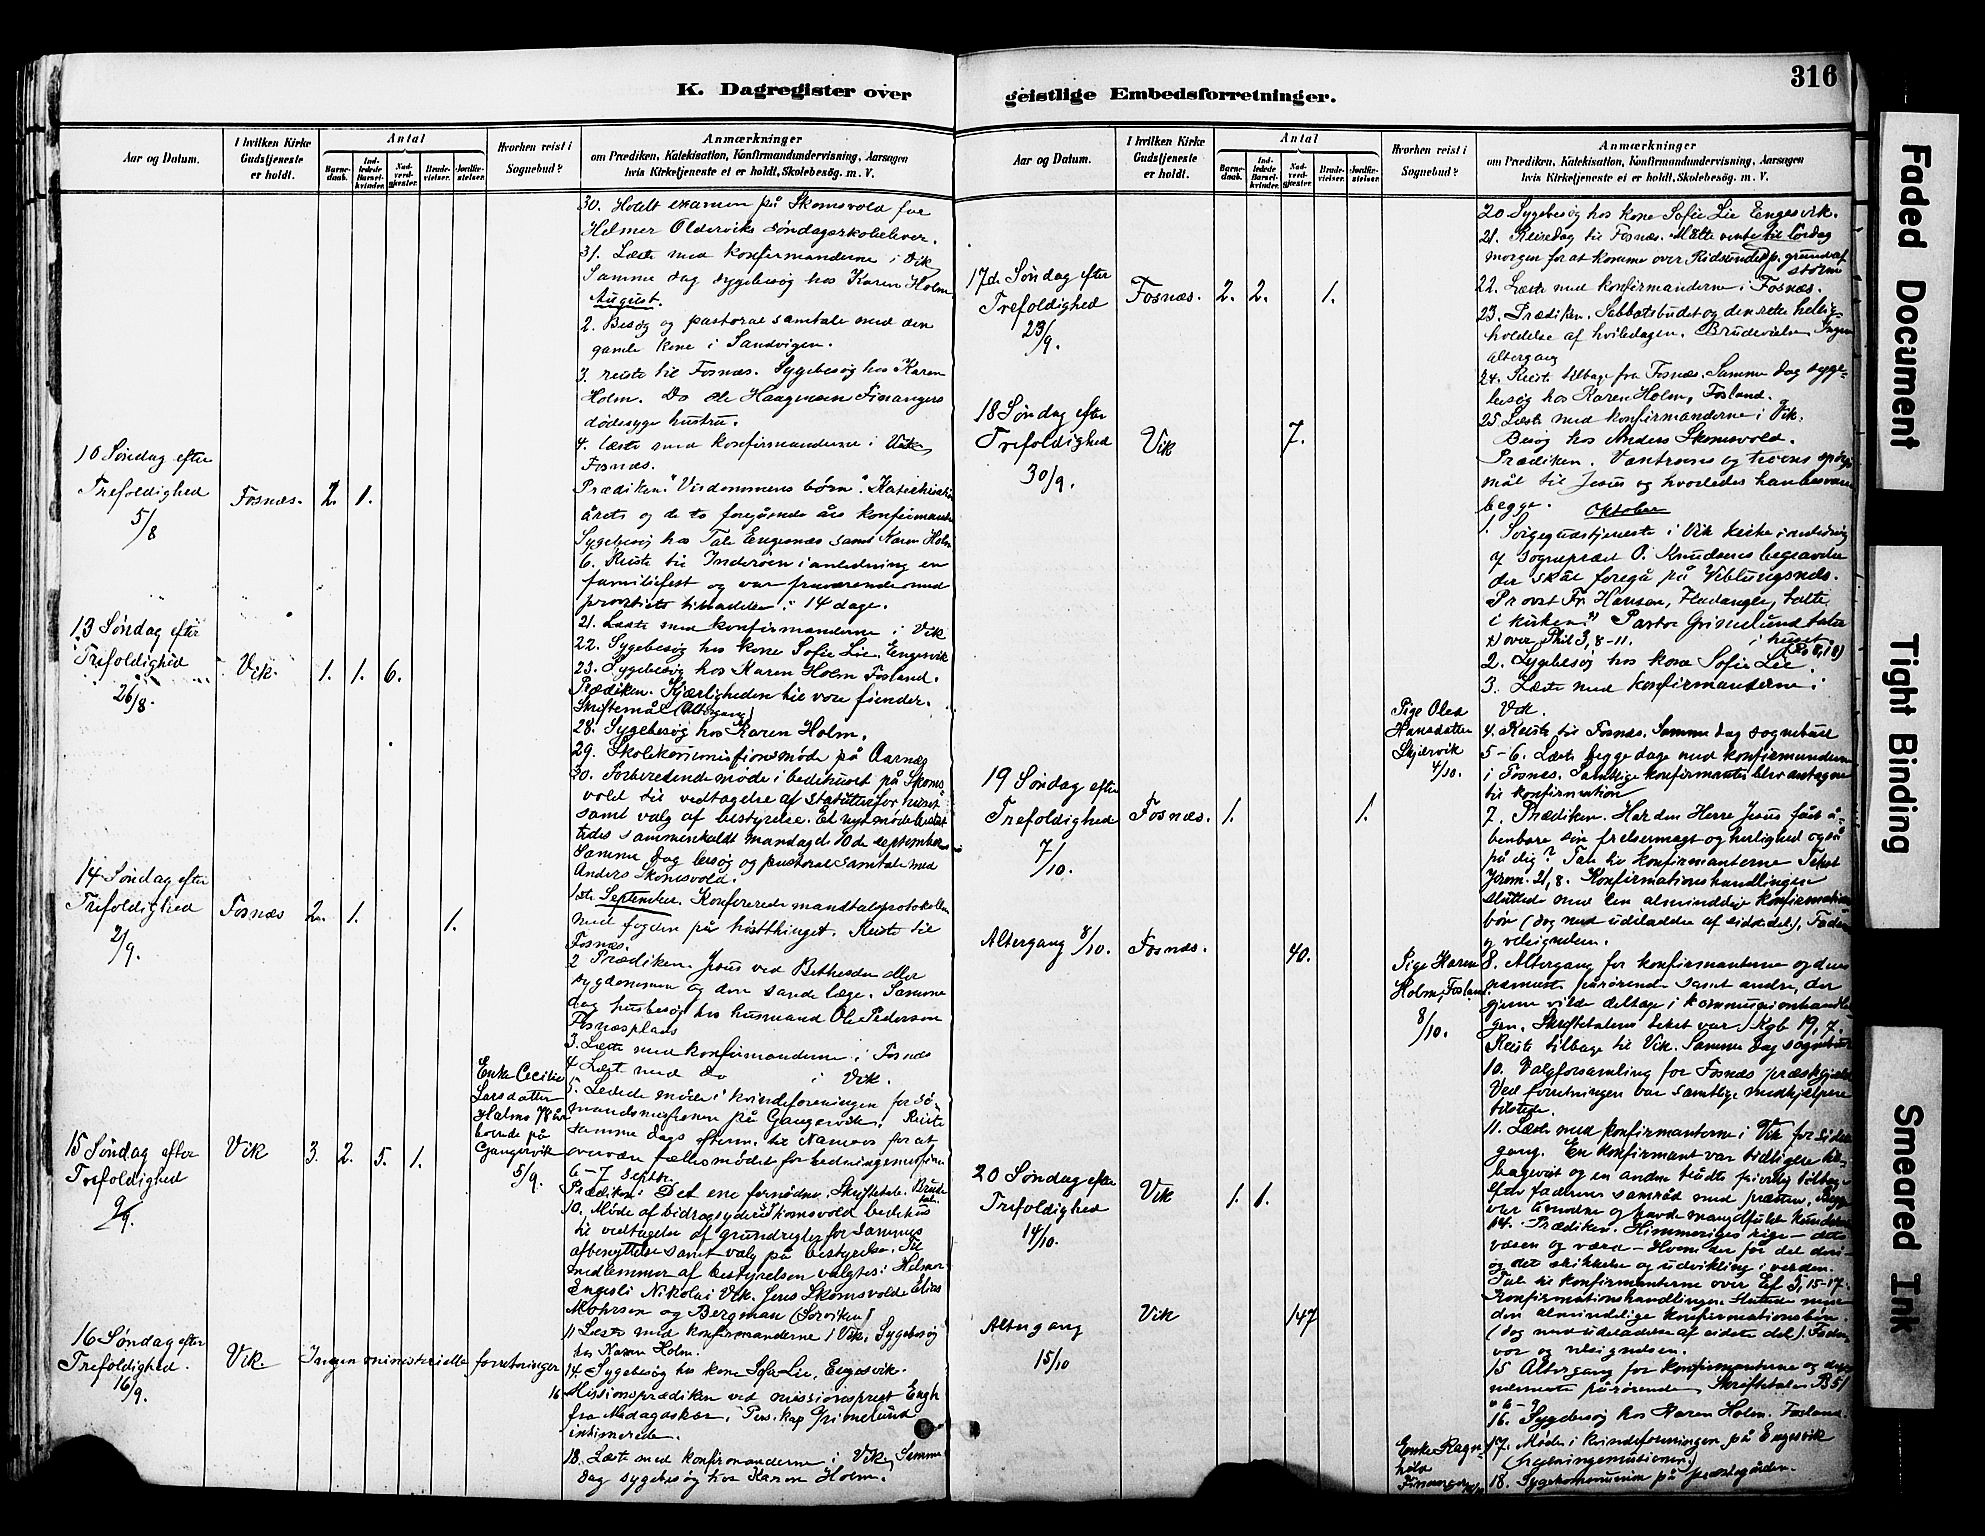 K. Dagregister over
Aar og Datum.
I hvilken Kirke Gudstjeneste er holdt.
Antal
Barnedaab.
Indledede Barselkvinder.
Nadverdgjester.
Brudevielser.
Jordfæstelser.
Hvorhen reist i Sognebud?
Anmærkninger
om Prædiken, Katekisation, Konfirmandundervisning, Aarsagen
hvis Kirketjeneste ei er holdt, Skolebesøg. m. V.
30. Holdt examen på Skomsvold for
Helmer Olderviks søndagsskolelever.
31. Læste med konfirmanderne i Vik
Samme dag sygebesøg hos Karen Holm
August.
2. Besøg og pastoral samtale med den
gamle kone i Sandvigen.
3. reiste til Fosnæs. Sygebesøg hos Karen
Holm. Do Ole Haagensen Finangers
dødssyge hustru.
4. læste med konfirmanderne i
Fosnæs.
10 Søndag efter
Trefoldighed
5/8
Fosnæs. 2. 1.
Prædiken "Visdommens børn". Katechisation
årets og de to foregående års konfirmander
Sygebesøg hos Tale Engesnæs samt Karen Holm
6. Reiste til Inderøen i anledning en
familiefest og var fraværende med
provstiets tilladelse i 14 dage.
21. Læste med konfirmanderne i Vik
22. Sygebesøg hos kone Sofie Lie, Engesvik
23. Sygebesøg hos Karen Holm Fosland.
13 Søndag efter
Trefoldighed
26/8.
Vik. 1. 1. 6.
Prædiken. Kjærligheden til vore fiender.
Skriftemål (Altergang)
28. Sygebesøg hos Karen Holm.
29. Skolekommissionsmøde på Aarnæs
30. Forberedende møde i bedehuset på Skoms-
vold til vedtagelse af statutter for huset
samt valg af bestyrelse. Et nyt møde
tides sammenkaldt mandag d. 10de september
Samme dag besøg og pastoral samtale med
Anders Skomsvold.
1ste September. Konfererede mandtalsprotokollen
med fogden på høstthinget. Reiste til
Fosnæs.
14 Søndag efter
Trefoldighed
2/9.
Fosnæs 2. 1. 1.
2 Prædiken. Jesus ved Bethesda eller
sygdommen og den sande læge. Samme
dag husbesøg hos husmand Ole Pederson
Fosnæsplads
3. Læste med konfirmanderne i Fosnæs
4 Læst med do i Vik.
5. Ledede møde i kvindeforeningen for sø-
mandsmissionen på Gangervik. Reiste
samme dags efterm. til Namsos for at
overvære fællesmødet for hedningemissionen
6-7 septbr.
Enke Cecilie
Larsdatter
Holms 78 år
boende på
Gangervik
5/9.
15 Søndag efter
Trefoldighed
9/9.
Vik 3. 2. 5. 1.
Prædiken: Det ene fornødne. Skriftetale. Brude-
tale.
10. Møde af bidragsydere til Skomsvold bedehus
til vedtagelse af grundregler for sammes
afbenyttelse samt valg på bestyrelse. Til
medlemmer af bestyrelsen valgtes: Helmer
Engesli Nikolai Vik. Jens Skomsvold Elias
Mohrsen og Bergman (Sørviken)
11 Læste med konfirmanderne i Vik, Sygebesøg
hos Karen Holm.
14. Sygebesøg hos kone Sofie Lie, Engesvik.
16 Søndag efter
Trefoldighed.
16/9.
Vik. Ingen ministerielle forretninger
16 Missionsprædiken ved missionsprest Engh
fra Madagaskar. Pers. kap Grimelund
intimerede.
18. Læste med konfirmanderne i Vik, Samme
dag sygebesøg hos Karen Holm.
316
geistlige Embedsforretninger.
Aar og Datum.
I hvilken Kirke Gudstjeneste er holdt.
Antal
Barnedaab.
Indledede Barselkvinder.
Nadverdgjester.
Brudevielser.
Jordfæstelser.
Hvorhen reist i Sognebud?
Anmærkninger
om Prædiken, Katekisation, Konfirmandundervisning, Aarsagen
hvis Kirketjeneste ei er holdt, Skolebesøg. m. V.
20 Sygebesøg hos kone Sofie Lie Engesvik.
21. Reisedag til Fosnæs. Måtte vente til lørdag
morgen for at komme over Rødsundet p. grund af
storm
22. Læste med konfirmanderne i Fosnæs.
17de Søndag efter
Trefoldighed
23/9.
Fosnæs. 2. 2. 1.
23. Prædiken. Sabbatsbudet og den rette hellig-
holdelse af hviledagen. Brudevielse. Ingen
altergang
24. Reiste tilbage fra Fosnæs. Samme dag syge-
besøg hos Karen Holm, Fosland.
25. Læste med konfirmanderne i Vik.
Besøg hos Anders Skomsvold.
18 Søndag efter
Trefoldighed
30/9.
Vik 7.
Prædiken. Vantroens og troens spørgs-
mål til Jesus og hvorledes han besvarer
begge.
Oktober
1. Sørgegudstjeneste i Vik kirke i anledning
af Sogneprest O. Knudsens begravelse
der skal foregå på Veblungsnæs.
Provst Fr. Hansen, Fladanger, talte
i kirken. x) Pastor Grimelund talte
x) over Phil 3, 8-11. i huset
2. Sygebesøg hos kone Sofie Lie.
3. Læste med konfirmanterne i
Vik.
Pige Olea
Hansdatter
Skjærvik
4/10.
4. Reiste til Fosnæs. Samme dag sognebud
5-6. Læste begge dage med konfirmanderne
i Fosnæs. Samtlige konfirmanter blev antagne
til konfirmation
19 Søndag efter
Trefoldighed
7/10.
Fosnæs. 1. 1.
7. Prædiken. Har den Herre Jesus fået å-
benbare sin frelsermagt og herlighed også
på dig? Tale til konfirmanterne Tekst
Jerem. 21, 8. Konfirmationshandlingen
sluttede med den almindelige konfirmations-
bøn (dog med udeladelse af eidsdelen), Fadervor
og velsignelsen.
Altergang 8/10. Fosnæs. 40.
Pige Karen
Holm, Fosland.
8/10.
8. Altergang for konfirmanterne og deres
nærmeste pårørende samt andre, der
gjerne vilde deltage i kommunionhandlin-
gen. Skriftetalens tekst var Høb 19, 7.
Reiste tilbage til Vik. Samme dag sognebud
10. Valgforsamling for Fosnæs præstegjæld
Ved forretningen var samtlige medhjælpere
tilstede.
11. Læste med konfirmanterne i Vik for sidste
gang. En konfirmant var tidligere til-
bagevist og en anden trådte frivillig tilbage
efter faderens samråd med præsten. Begge
var tvende og havde mangelfulde kundskaber
20 Søndag efter
Trefoldighed
14/10.
Vik 1. 1.
14. Prædiken. Himmeriges rige - dets
væsen og værd - Hvem der får del deri -
og det skikkelse og udvikling i verden.
Tale til konfirmanterne over Ef 5, 15-17.
Konfirmationshandlingen sluttede med
den almindelige konfirmationsbøn
(dog med udeladelse af eidets del). Fader-
vor og velsignelsen.
Altergang
15/10
Vik 147
15 Altergang for konfirmanterne og deres
nærmeste pårørende, Skriftetalen
16. Sygebesøg hos Karen Holm. Fosland.
Enke Ragn-
hild
Finanger
17. Møde i kvindeforeningen på Engesvik
(hedningemissionen)
18. Sygekommunion på præstegården.
Faded Document
Tight Binding
Smeared Ink